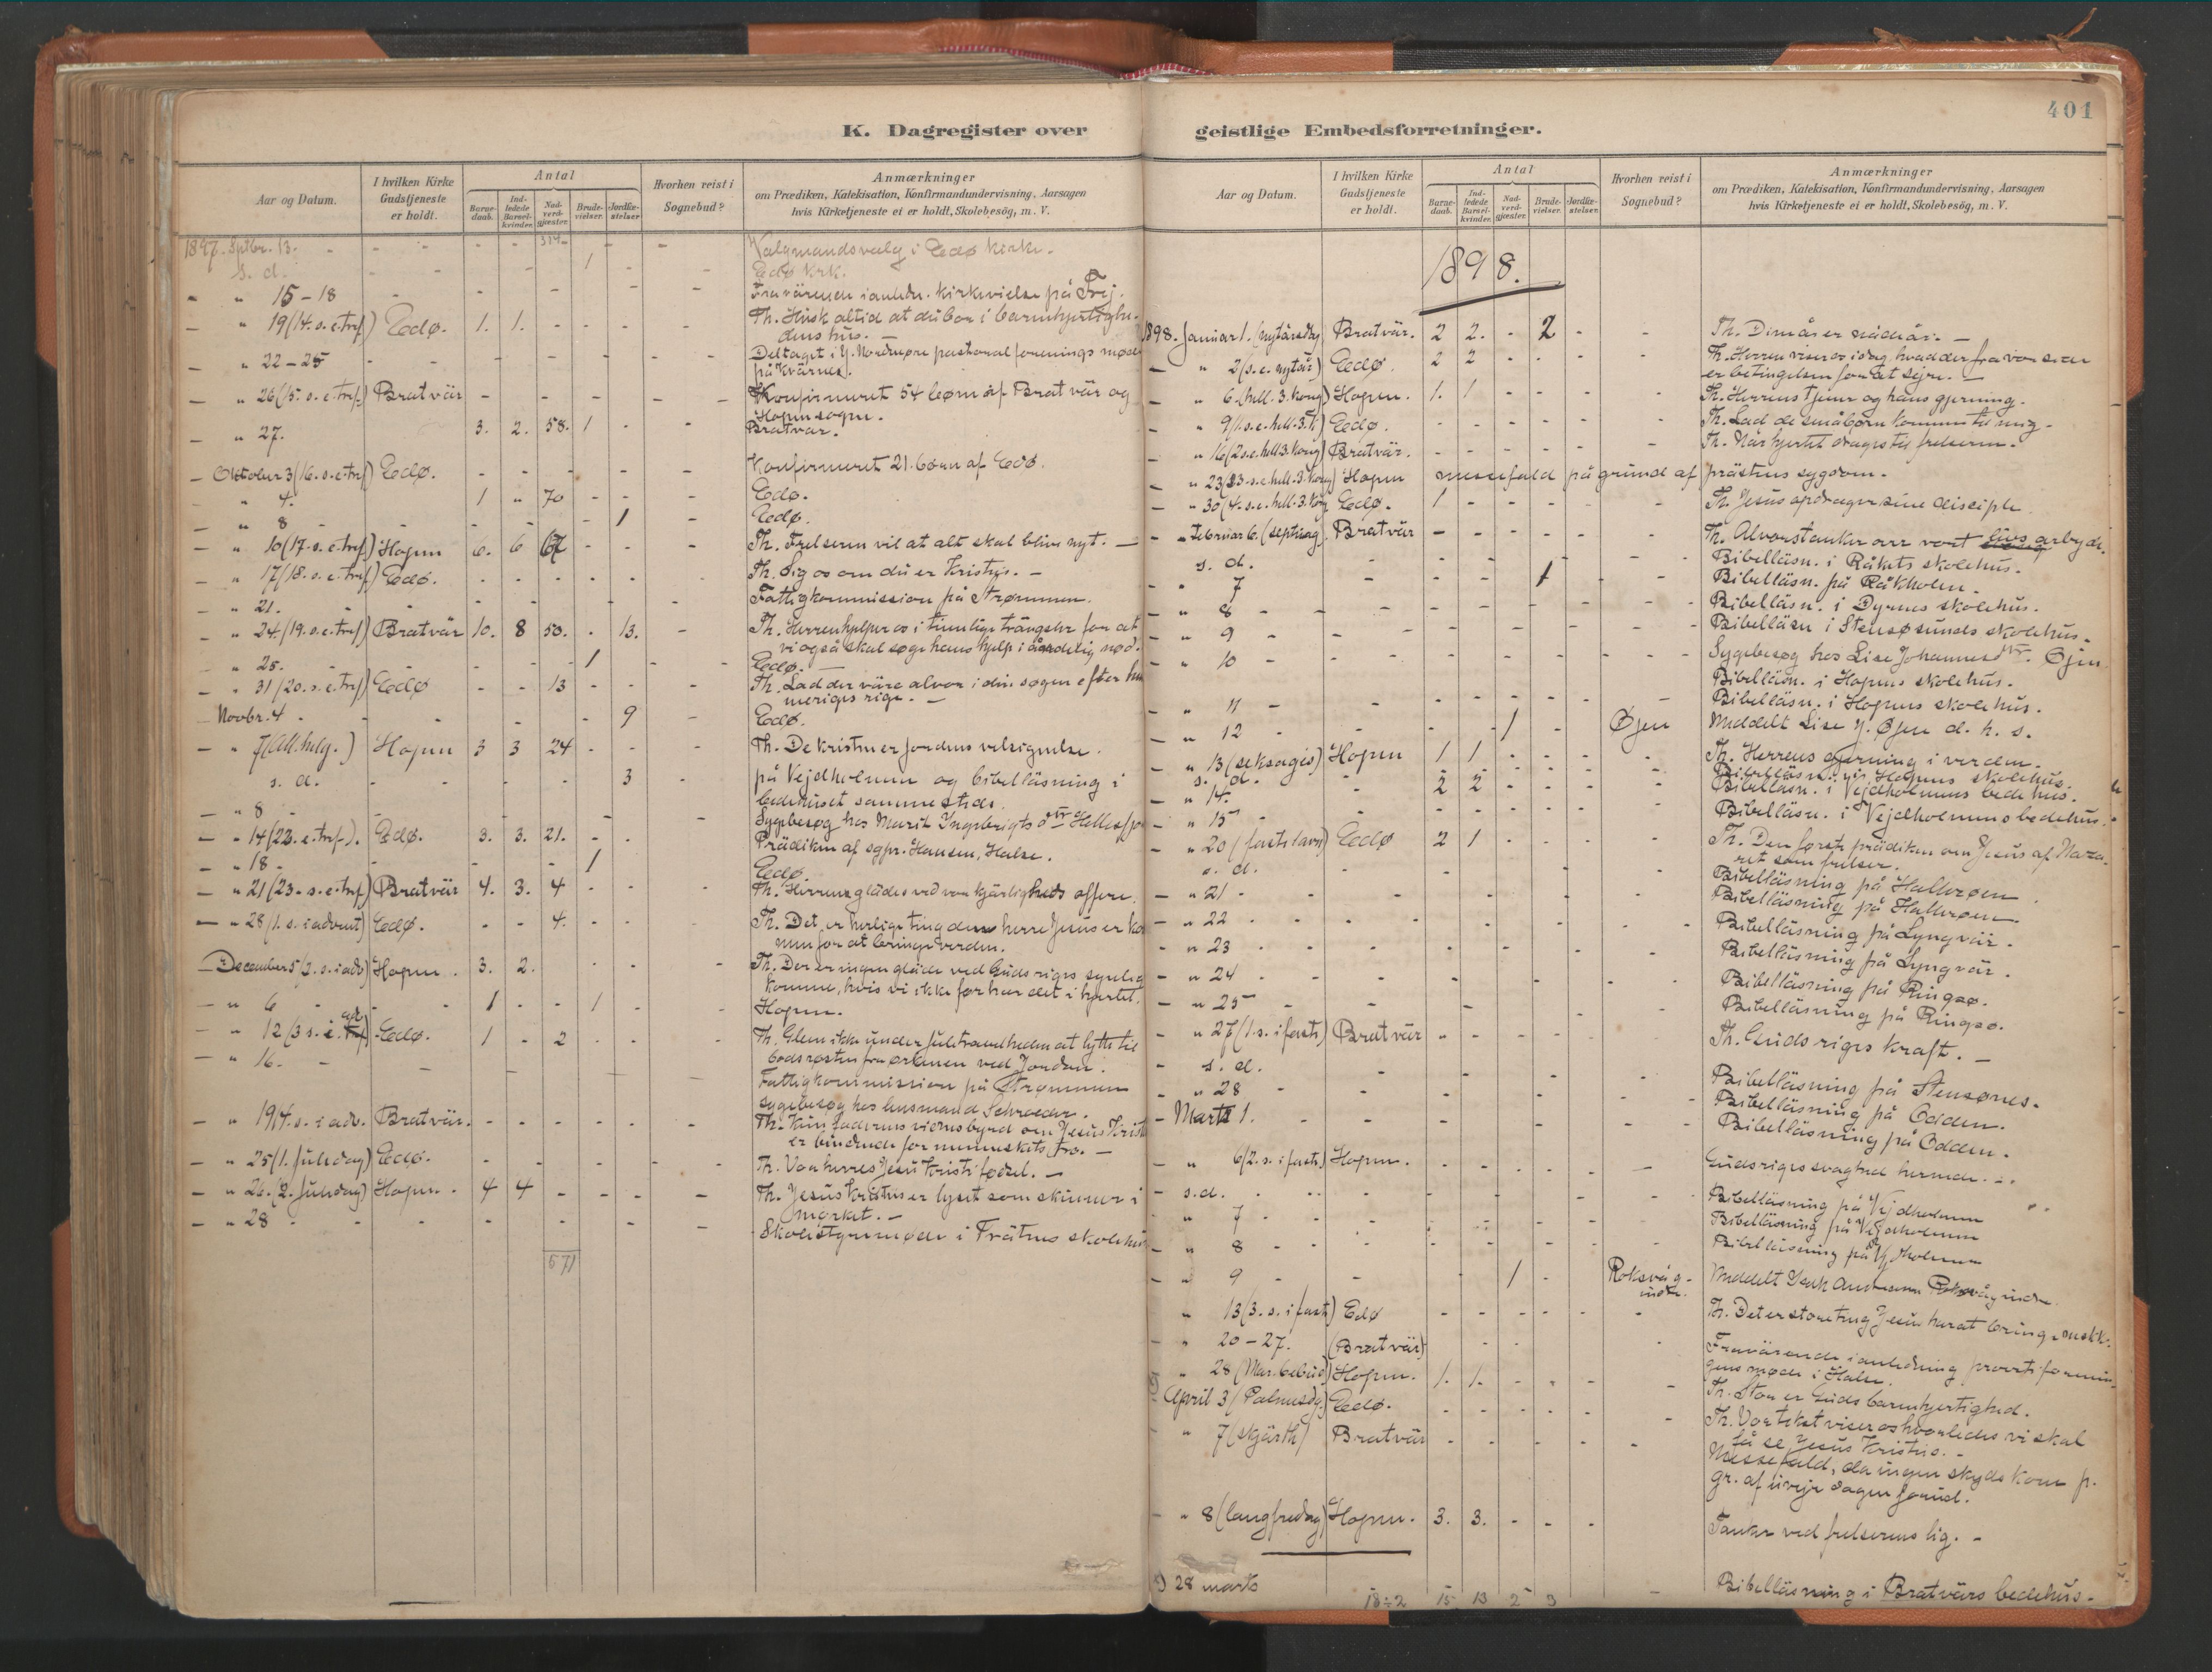 K. Dagregister over
Aar og Datum.
I hvilken Kirke Gudstjeneste er holdt.
Antal
Barne-daab.
Ind-ledede Barsel-kvinder.
Nad-verd-gjæster.
Brude-vielser.
Jordfæ-stelser
Hvorhen reist i Sognebud?
Anmærkninger
om Prædiken, Katekisation, Konfirmandundervisning, Aarsagen
hvis Kirketjeneste ei er holdt, Skolebesög, m. V.
1897. Septbr. 13. - - - - Valgmandsvalg i Edø kirke.
s. d. - - - 1 - - Edø kirk.
- " 15-18 - - - - - - Fraværende i anledn. kirkevielse på Frej.
- " 19 (14. s. e. tref) Edø. 1. 1. - - - - Th. Husk altid at du bor i barmhjertighe-
dens hus. -
" 22-25 - - - - - - Deltaget i Y. Nordmøre pastoral forenings møde
på Kvärnes.
- " 26 (15. s. e. tref.) Bratvär - - - - - - Konfirmeret 54 børn af Bratvär og
Hopen sogne.
- " 27. 3. 2. 58. 1 - - Bratvär.
- Oktober 3 (16. s. e. tref) Edø. - - - - - - Konfirmeret 21 børn af Edø.
- " 4. 1 " 70 - - - Edø.
- " 8 - - - - - 1 - Edø.
- " 10 (17. s. e. tref) Hopen 6. 6 67 - - - Th. Frelseren vil at alt skal blive nyt. -
- " 17 (18. s. e. tref) Edø. - - - - - - Th. Sig os om du er Kristus. -
- " 21. - - - - - - Fattigkommission på Strømmen.
- " 24. (19. s. e. tref) Bratvär 10. 8 50. . 13. - Th. Herren hjelper os i timelige trängsler for at
vi også skal søge hans hjelp i åndelig nød.
- " 25. - - - - 1 - - Edø.
- " 31 (20. s. e. tref) Edø - - 13 - - - Th. Lad der väre alvor i din søgen efter him
meriges rige. -
- Novbr. 4 - - - - - 9 - Edø.
- " 7 (All. helg.) Hopen 3 3 24 - - - Th. De kristne er jordens velsignelse.
s. d. - - - - - 3 - på Vejdholmen og bibelläsning i
bedehuset sammesteds.
- " 8 - - - - - - Sygebesøg hos Marit Ingebrigtsdtr
- " 14 (22. e. tref.). Edø. 3. 3. 21. - - - Prädiken af sgpr. Hansen, Halse.
- " 18 - - - - 1 - - Edø.
- " 21 (23. s. e. tref) Bratvär 4. 3. 4 - - - Th. Herren glädes ved vor kjärligheds offere.
- " 28 (1. s. i advent) Edø. - - 4. - - Th. Det er herlige ting den herre Jesus er kom
men for at bringe verden.
- December 5 (2. s. i adv) Hopen. 3. 2. - - - Th. Der er ingen gläde ved Guds riges synlig
komme, hvis vi ikke før har det i hjertet.
- " 6 - - 1 - - 1 - - Hopen.
- " 12 (3 s. i adv) Edø. 1 - 2 - - - Th. Glem ikke under juletravelheden at lytte til
bodsrøsten fra ørkenen ved Jordan.
- " 16. - - - - - - Fattigkommission på Strømmen
sygebesøg hos husmand Schrøder.
- " 19 (4. s. i adv. Bratvär. - - - - - - Th. Kun faderens vidnesbyrd om Jesus Krist
er bindende for menneskets tro. -
- " 25 (1. juledag) Edø. - - - - - - Th. Vor herres Jesu Kristi fødsel. -
- " 26. (2. juledag) Hopen. 4 4 - - - - Th. Jesus Kristus er lyset som skinner i
mørket. -
- " 28 - - - - - - Skolestyremøde i skolehus
571
401
geistlige Embedsforretninger.
Aar og Datum.
I hvilken Kirke Gudstjeneste er holdt.
Antal
Barne-daab.
Ind-ledede Barsel-kvinder.
Nad-verd-gjæster.
Brude-vielser.
Jordfæ-stelser.
Hvorhen reist i Sognebud?
Anmærkninger
om Prædiken, Katekisation, Konfirmandundervisning, Aarsagen
hvis Kirketjeneste ei er holdt, Skolebesög, m. V.
1898.
1898. Januar 1. (nytårsdag Bratvär. 2 2. - 2 - - Th. nådeår. -
- " 2 (s. e. nytår) Edø. 2 2 - - - - Th. Herren viser os idag hvad der fra vor side
er betingelsen for at sejre. -
- " 6. (hell. 3. kong) Hopen. 1. 1 - - - - Th. Herrens tjener og hans gjerning.
- " 9 (1. s. e. hell. 3. k) Edø. - - - - - - Th. Lad de småbørn komme til mig -
- " 16 (2 s. e. hell. 3. kong) Bratvär. - - - - - - Th. Når hjertet drages til frelseren. -
- " 23 (3. s. e. hell. 3. kong) Hopen messefald på grund af prästens sygdom. -
- " 30 (4. s. e. hell. 3. kong Edø. 1 - - - - - Th. Jesus opdrager sine disciple
- " Februar 6. (septuag). Bratvär - - - - - - Th. Alvorstanker om vort livs arbejde.
s. d. - - Bibelläsn. i Råkets skolehus.
- " 7 - - - - 1 - Bibelläsn. på Råkholm.
- " 8 - - - - - - Bibelläsn. i Dyrnes skolehus.
- " 9 - - - - - - Bibelläsn i Stensøsunds skolehus.
- " 10 - - - - - - Sygebesøg hos Lise Johannesdtr. Øjen
Bibelläsn. i Hopens skolehus.
- " 11 - - - - - - Bibelläsn. i Hopens skolehus.
- " 12 - - - 1 - Øjen Meddelt Lise J. Øjen d. h. s.
- " 13 (seksages) Hopen 1 1 - - - - Th. Herrens gjerning i verden.
s. d. - Bibelläsn. i Hopens skolehus.
- " 14. 2 2 - - - Bibelläsn. i Vejdholmens bedehus.
- " 15 - - - - - Bibelläsn. i Vejdholmens bedehus.
- " 20 (fastelavn) Edø 2 1 - - - - Th. Den første prädiken om Jesus af Naza-
ret som frelser.
s. d. - - - Bibelläsning på Hallerøen.
- " 21 - - - - Bibelläsning på Hallerøen.
- " 22 - - - - Bibelläsning på Lyngvär.
- " 23 - - - - Bibelläsning på Lyngvär.
- " 24 - - - - Bibelläsning på Ringsø.
- " 25 - - - - Bibelläsning på Ringsø.
- " 27 (1. s. i faste) Bratvär - - - - - Th. Guds riges kraft. -
- s. d. - - - Bibelläsning på Stensønes.
- " 28 - - - - Bibelläsning på Odden.
- Marts 1. - - - - Bibelläsning på Odden.
- " 6 (2. s. i faste) Hopen. - - - - - Guds riges svaghed hernede.
- s. d. - - - Bibelläsning på Vejdholmen
" 7 - - - - Bibelläsning på Vejdholmen
- " 8 - - - - Bibelläsning på Vejdholmen
- " 9 - - - 1 - Roksvåg indre. Meddelt Roksvåg indre.
" 13 (3. s. i faste) Edø - - - - - - Th. Det er store ting Jesus har at bringe
- " 20-27. (Bratvär) - - - Fraværende i anledning provstiforenin-
gens møde i Halse.
" 28 (Mar. bebud) Hopen. 1. 1. - - - - Th. Stor er Guds barmhjertighed.
April 3 (Palmesdg.) Edø. - - - - - - Th. Vor tekst viser os hvorledes vi skal
få se Jesus Kristus. -
- " 7 (skjärth) Bratvär - - - - - - Messefald, da ingen skyds kom p.
gr. af uvejr dagen forud.
- " 8 (langfredag) Hopen. 3. 3. - - - Tanker ved frelserens lig. -
28 marts - Bibelläsning i Bratvärs bedehus. -
18÷2 15 13 2 3